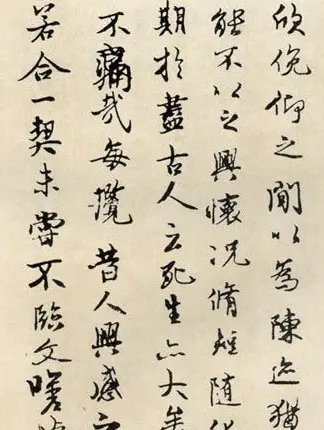 欣俛仰之閒以為陳迹猶
能不以之興懷況脩短隨化
期於盡古人云死生亦大矣
不痛哉每攬昔人興感之
若合一契未嘗不臨文嗟